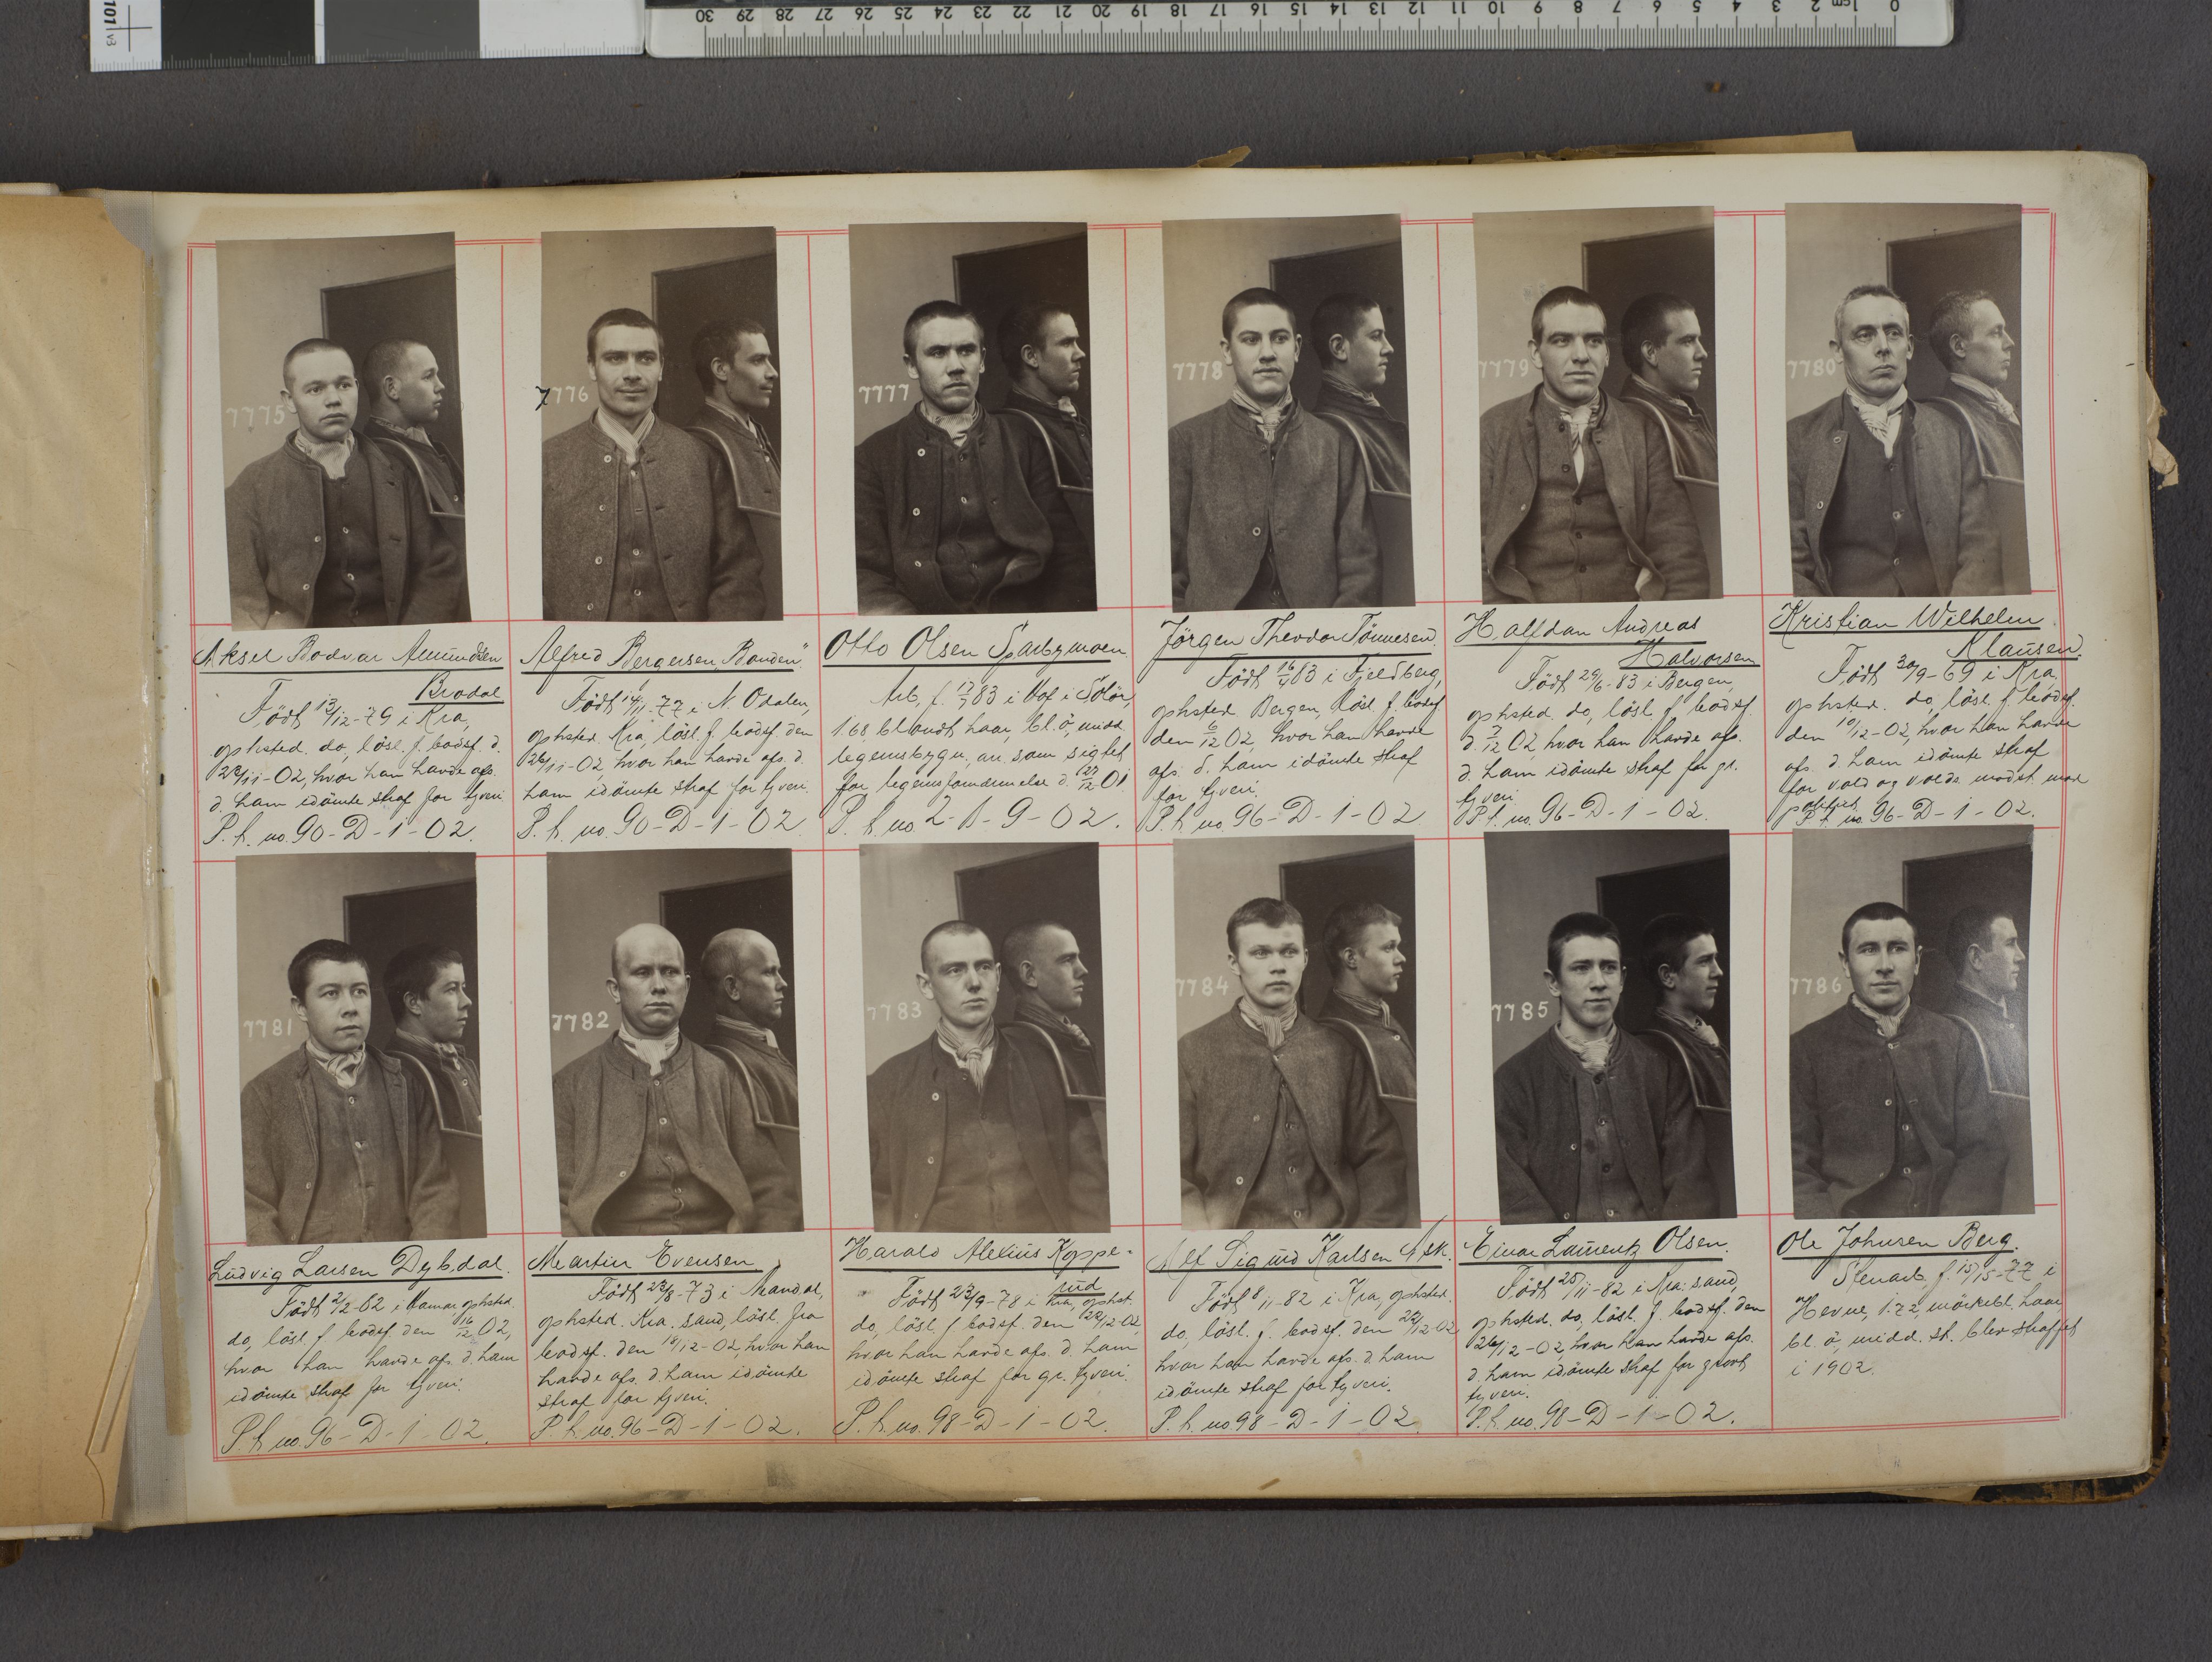 101 v3
0 1cm 2 3 4 5 6 7 8 9 10 11 12 13 14 15 16 17 18 19 20 21 22 23 24 25 26 27 28 29 30
7775
Aksel Bodvar Amundsen
Brodal
Født 13/12-79 i Kra,
ophsted. do, løsl. f. bodsf. d.
22/11-02, hvor han havde afs.
d. ham idømte straf for tyveri
P. h. no. 90-D-1-02.
7776
Alfred Bergersen "Bonden"
Født 14/11-77 i N. Odalen,
ophsted. Kra, løsl. f. bodsf. den
26/11-02, hvor han havde afs. d.
ham idømte straf for tyveri.
P. h. no. 90-D-1-02
7777
Otto Olsen Sparbymoen
Arb, f. 17/7 83 i Hof i Solør,
1.68, blondt haar, bl. ö, midd.
legemsbygn, an. som sigtet
for legemsfornærmelse d. 27/12 01.
P. h. no. 2-B-9-02.
7778
Jörgen Theodor Tönnesen
Født 16/4 83 i Fjeldberg,
ophsted. Bergen, løsl. f. bodsf
den 6/12 02, hvor han havde
afs. d. ham idømte straf
for tyveri.
P. h. no. 96-D-1-02
7779
Halfdan Andreas
Halvorsen
Født 29/6-83 i Bergen,
ophsted. do, løsl. f. bodsf.
d. 7/12 02, hvor han havde afs.
d. ham idømte straf for gr.
tyveri
P. h. no. 96-D-1-02.
7780
Kristian Wilhelm
Klausen.
Født 30/9-69 i Kra,
ophsted. do, løsl. f. bodsf.
den 10/12-02, hvor han havde
afs. d. ham idømte straf
for vold og volds. modst. mod
politiet
P. h. no. 96-D-1-02.
7781
Ludvig Larsen Dybdal.
Født 2/2-62 i Hamar, ophsted.
do, løsl. f. bodsf. den 16/12 02,
hvor han havde afs. d. ham
idømte straf for tyveri.
P. h. no. 96-D-1-02.
7782
Martin Evensen
Født 23/8-73 i Mandal,
ophsted. Kra. sand, løsl. fra
bodsf. den 18/12-02, hvor han
havde afs. d. ham idømte
straf for tyveri.
P. h. no. 96-D-1-02.
7783
Harald Alexius Koppe-
rud
Født 23/9-78 i Kra, ophst.
do, løsl. f. bodsf. den 22/12-02,
hvor han havde afs. d. ham
idømte straf for gr. tyveri.
P. h. no. 98-D-1-02.
7784
Alf Sigurd Karlsen Ask.
Født 8/11-82 i Kra, ophsted.
do, løsl. f. bodsf. den 22/12-02
hvor han havde afs. d. ham
idømte straf for tyveri.
P. h. no. 98-D-1-02
7785
Einar Laurentz Olsen.
Født 25/11-82 i Kra: sand,
ophsted. do, løsl. f. bodsf. den
26/12-02, hvor han havde afs.
d. ham idømte straf for grovt
tyveri.
P. h. no. 98-D-1-02.
7786
Ole Johnsen Berg.
Stenarb, f. 15/5-77 i
Hevne, 1.72, mörkebl. haar,
bl. ö, midd. st. blev straffet
i 1902.